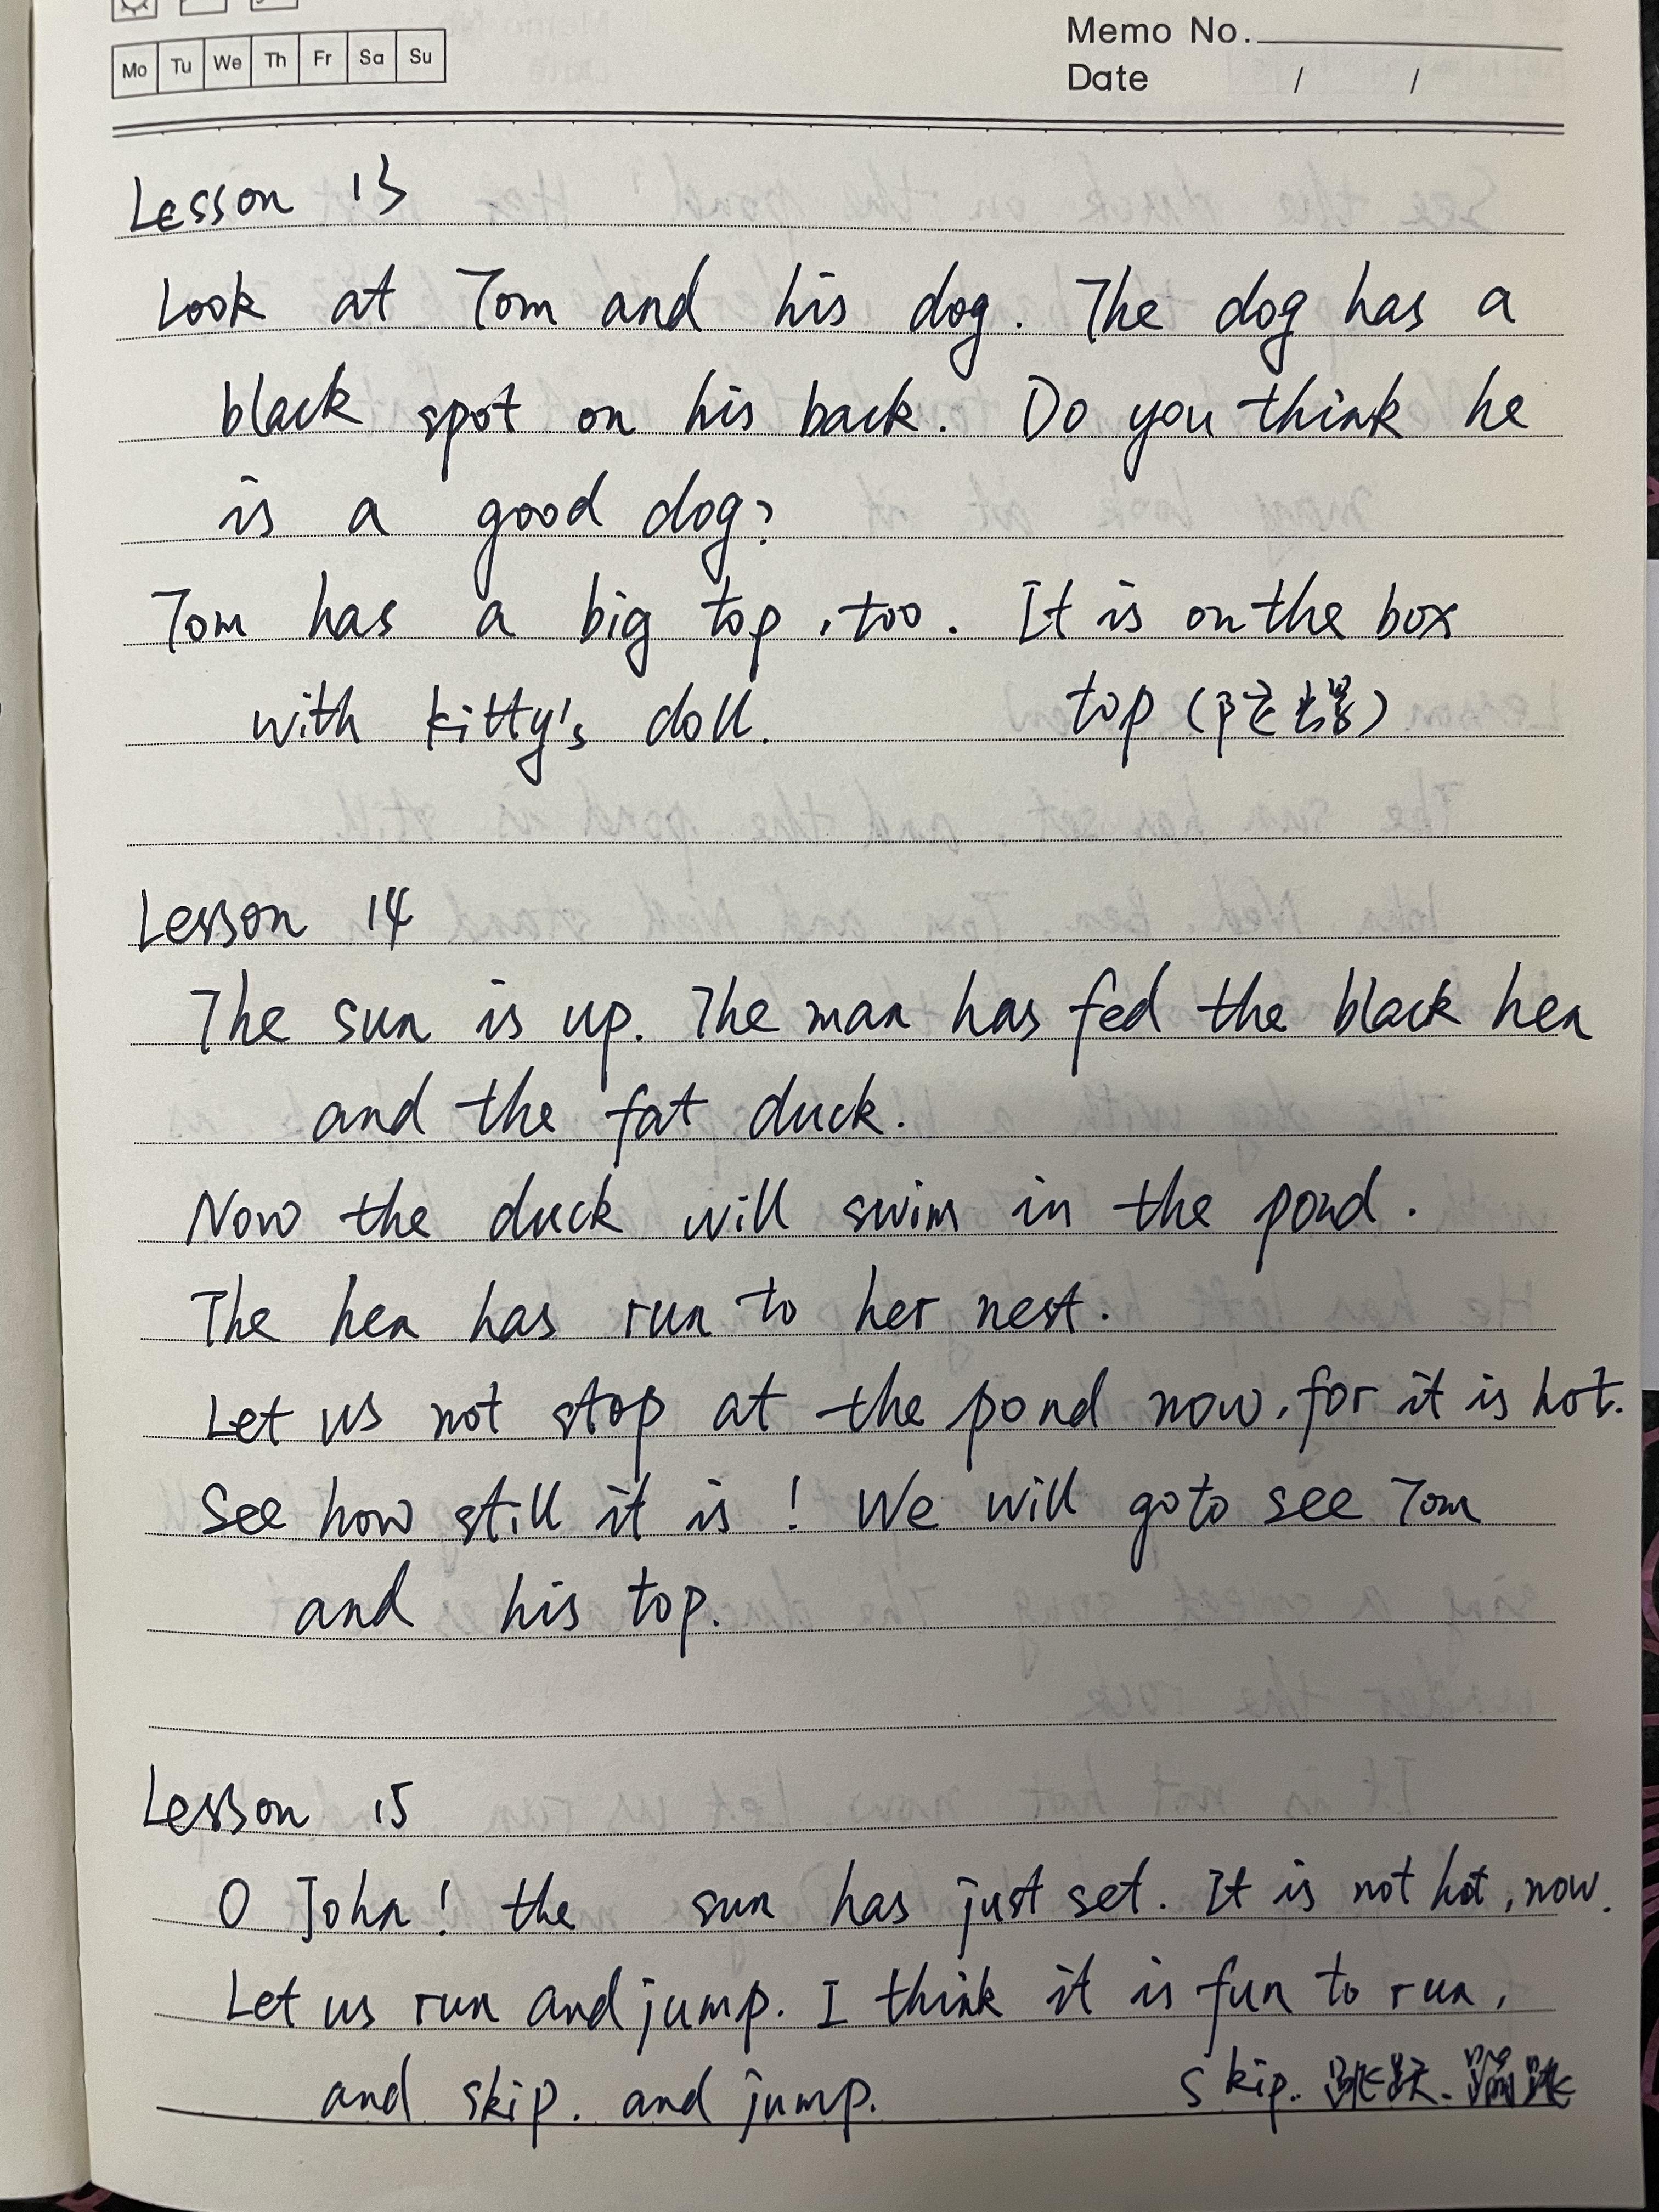 Mo Tu We Th Fr Sa Su
Memo No.
Date / /
Lesson 13
Look at Tom and his dog. The dog has a
black spot on his back. Do you think he
is a good dog?
Tom has a big top, too. It is on the box
with kitty's doll. top (陀螺)
Lesson 14
The sun is up. The man has fed the black hen
and the fat duck.
Now the duck will swim in the pond.
The hen has run to her nest.
Let us not stop at the pond now, for it is hot.
See how still it is! We will go to see Tom
and his top.
Lesson 15
O John! the sun has just set. It is not hot, now.
Let us run and jump. I think it is fun to run,
and skip. and jump. skip.. 跳跃. 蹦跳